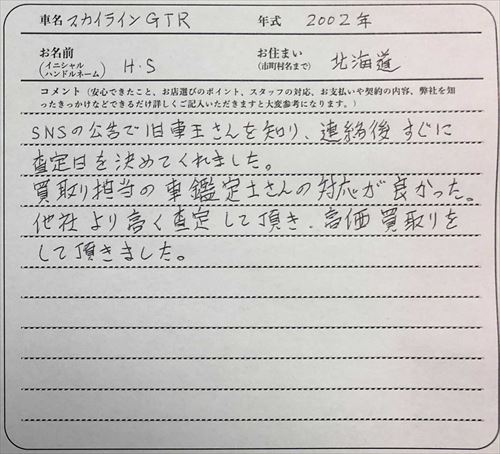 車名 スカイラインGTR 年式 2002年
お名前 (イニシャル ハンドルネーム) H.S お住まい (市町村名まで) 北海道
コメント (安心できたこと、お店選びのポイント、スタッフの対応、お支払いや契約の内容、弊社を知
ったきっかけなどできるだけ詳しくご記入いただきますと大変参考になります。)
SNSの公告で旧車王さんを知り、連絡後すぐに
査定日を決めてくれました。
買取り担当の車鑑定士さんの対応が良かった。
他社より高く査定して頂き、高価買取りを
して頂きました。